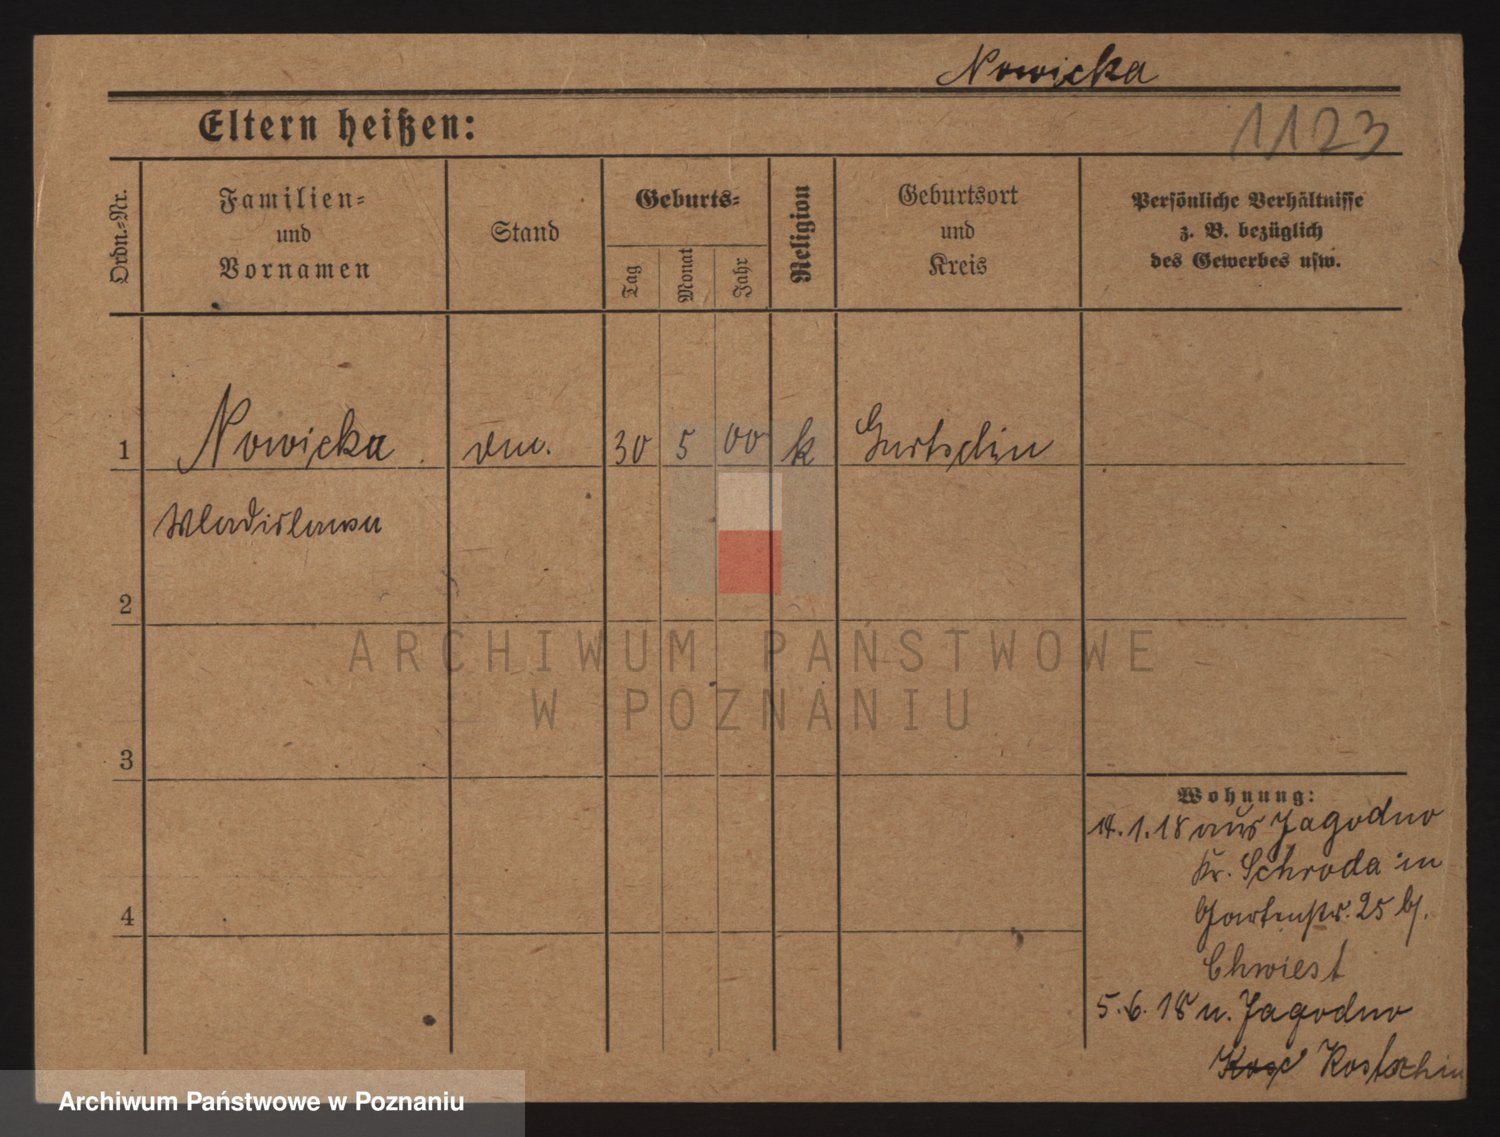 Nowicka
Eltern heißen:
1123
Ordn.-Nr.
Familien-
und
Vornamen
Stand
Geburts-
Tag
Monat
Jahr
Religion
Geburtsort
und
Kreis
Persönliche Verhältnisse
z. B. bezüglich
des Gewerbes usw.
1 Nowicka 30 5 00 k
Wladislawa
2
3
4
Wohnung:
1.18 aus Jagodno
Kr. Schroda in
Gartenstr. 25 b/.
Chwiest
5.6.18 n. Jagodno
Kostschin
ARCHIWUM PAŃSTWOWE
W POZNANIU
Archiwum Państwowe w Poznaniu